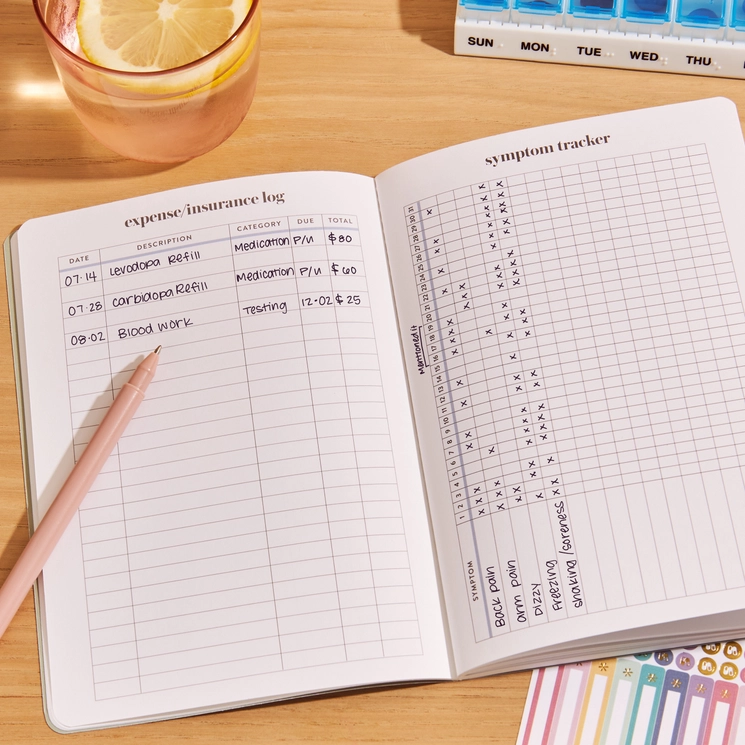 SUN MON TUE WED THU
expense/insurance log
DATE DESCRIPTION CATEGORY DUE TOTAL
07.14 Levodopa Refill Medication P/U $80
07.28 Carbidopa Refill Medication P/U $60
08.02 Blood Work Testing 12.02 $25
symptom tracker
SYMPTOM 1 2 3 4 5 6 7 8 9 10 11 12 13 14 15 16 17 18 19 20 21 22 23 24 25 26 27 28 29 30 31
Mentioned it
Back pain
arm pain
Dizzy
Freezing
shaking/soreness